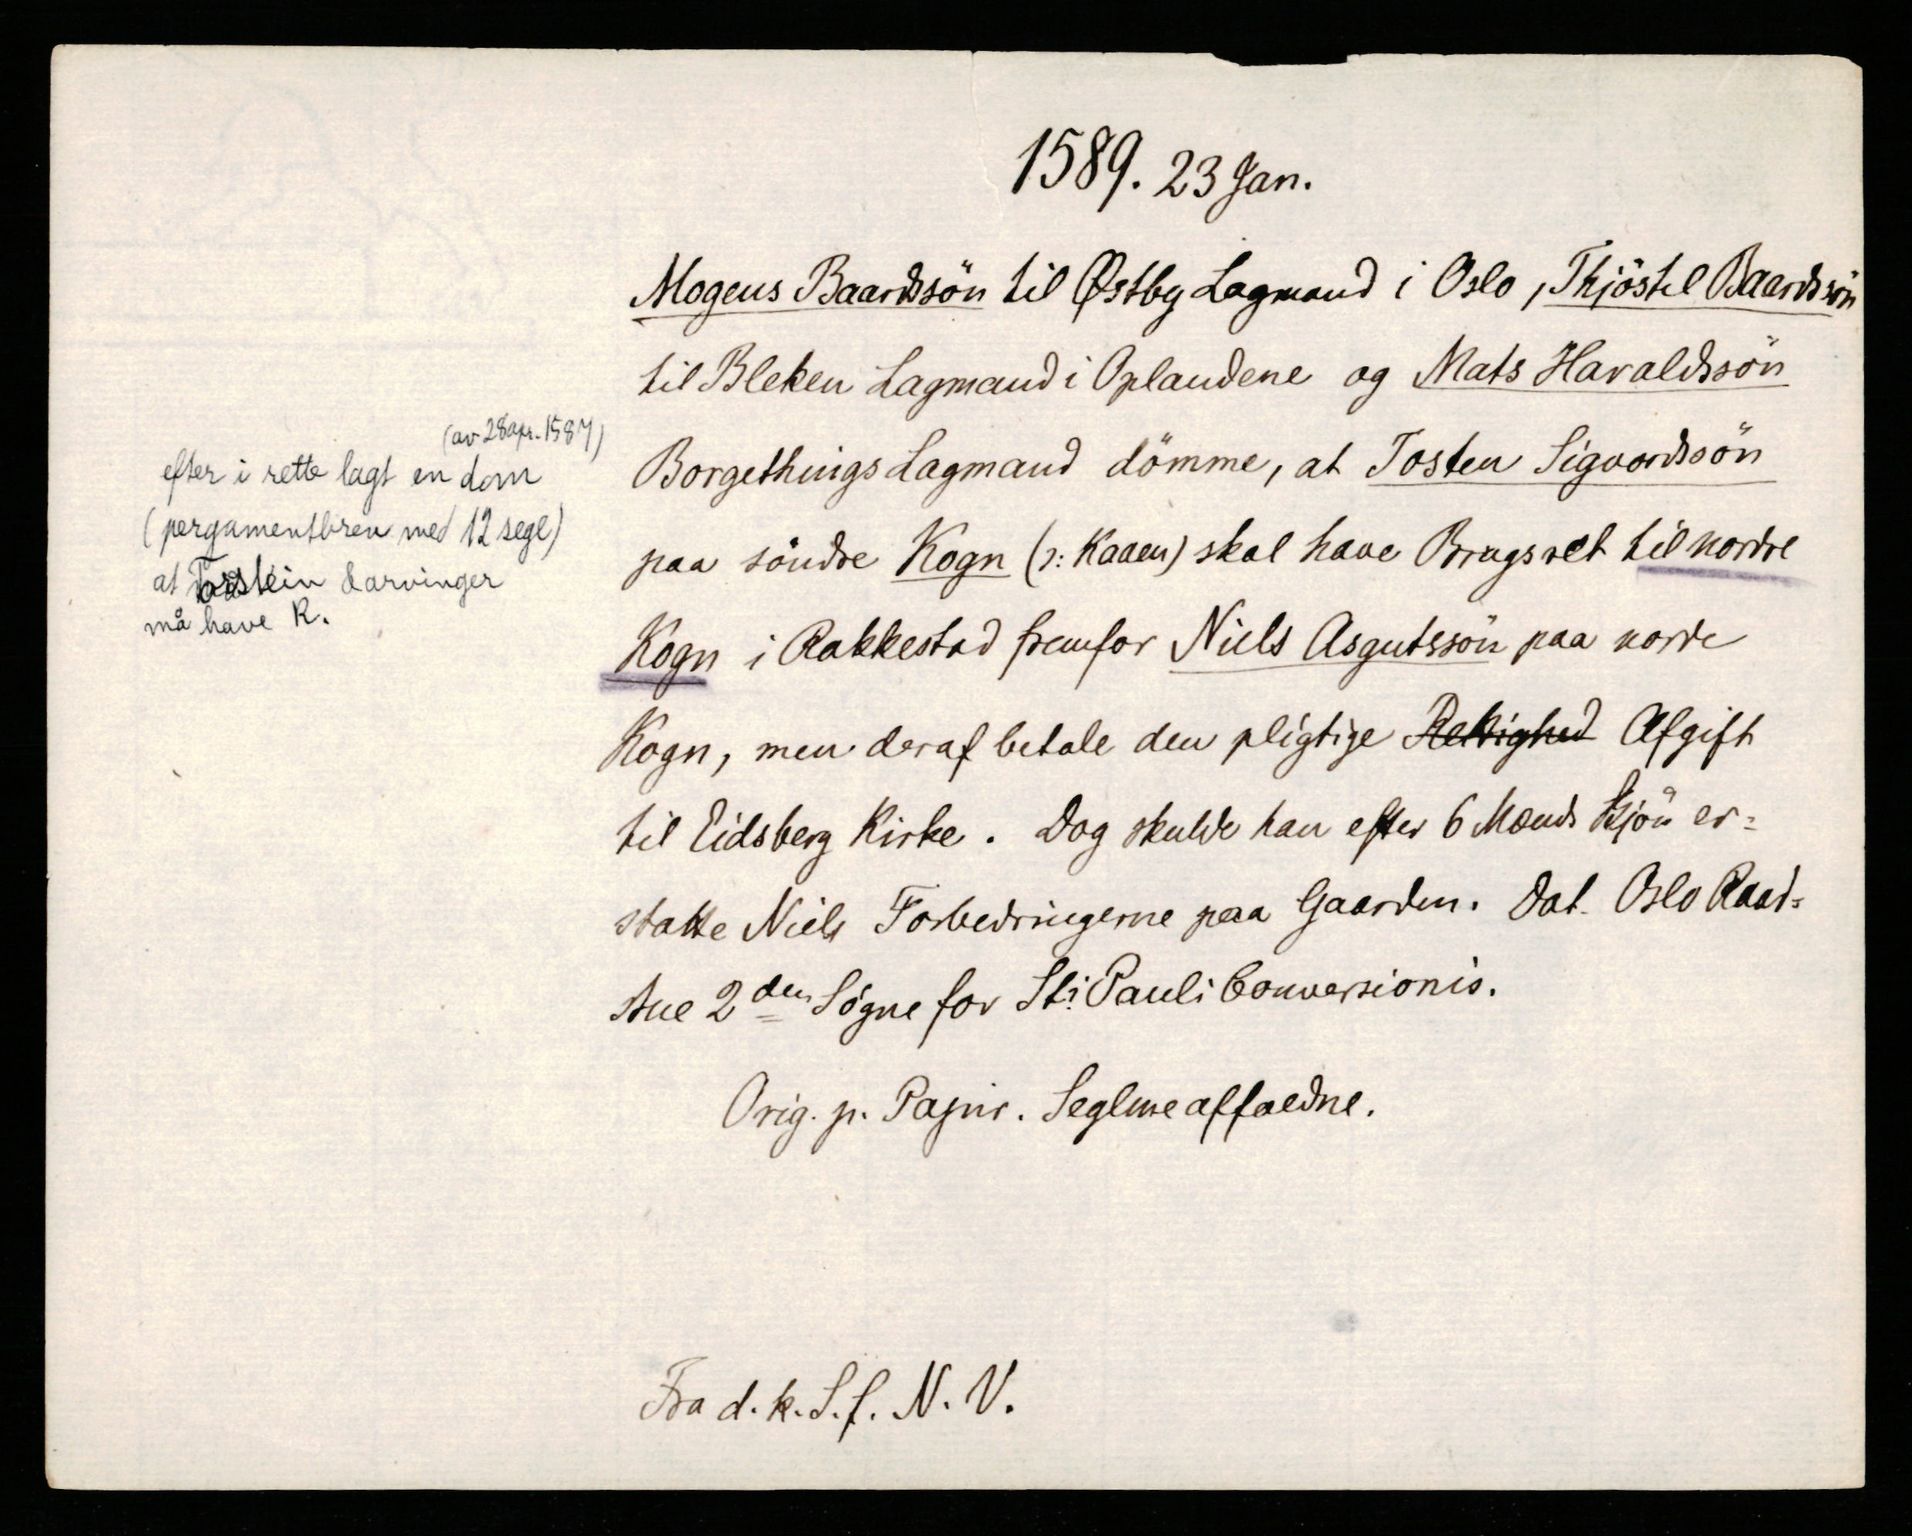 1589. 23 Jan.
Mogens Baardssön til Østby Lagmand i Oslo, Thjöstel Baardssön
til Bleken Lagmand i Oplandene og Mats Haraldssön
Borgethings Lagmand dömme, at Tosten Sigvordssön
paa söndre Kogn (ɔ: Kaaen) skal have Brugsret til nordre
Kogn i Rakkestad fremfor Niels Asgutssön paa nordre
Kogn, men deraf betale den pligtige Rettighed Afgift
til Eidsberg Kirke. Dog skulde han efter 6 Mænds Skjön er=
statte Niels Forbedringerne paa Gaarden. Dat. Oslo Raad=
stue 2den Søgne for Sti Pauli Conversionis.
Orig. p. Papir. Seglene affaldne.
Fra d. k. S. f. N. V.
(av 28 apr. 1587)
efter i rette lagt en dom
(pergamentbrev med 12 segl)
at Torstein & arvinger
må have K.